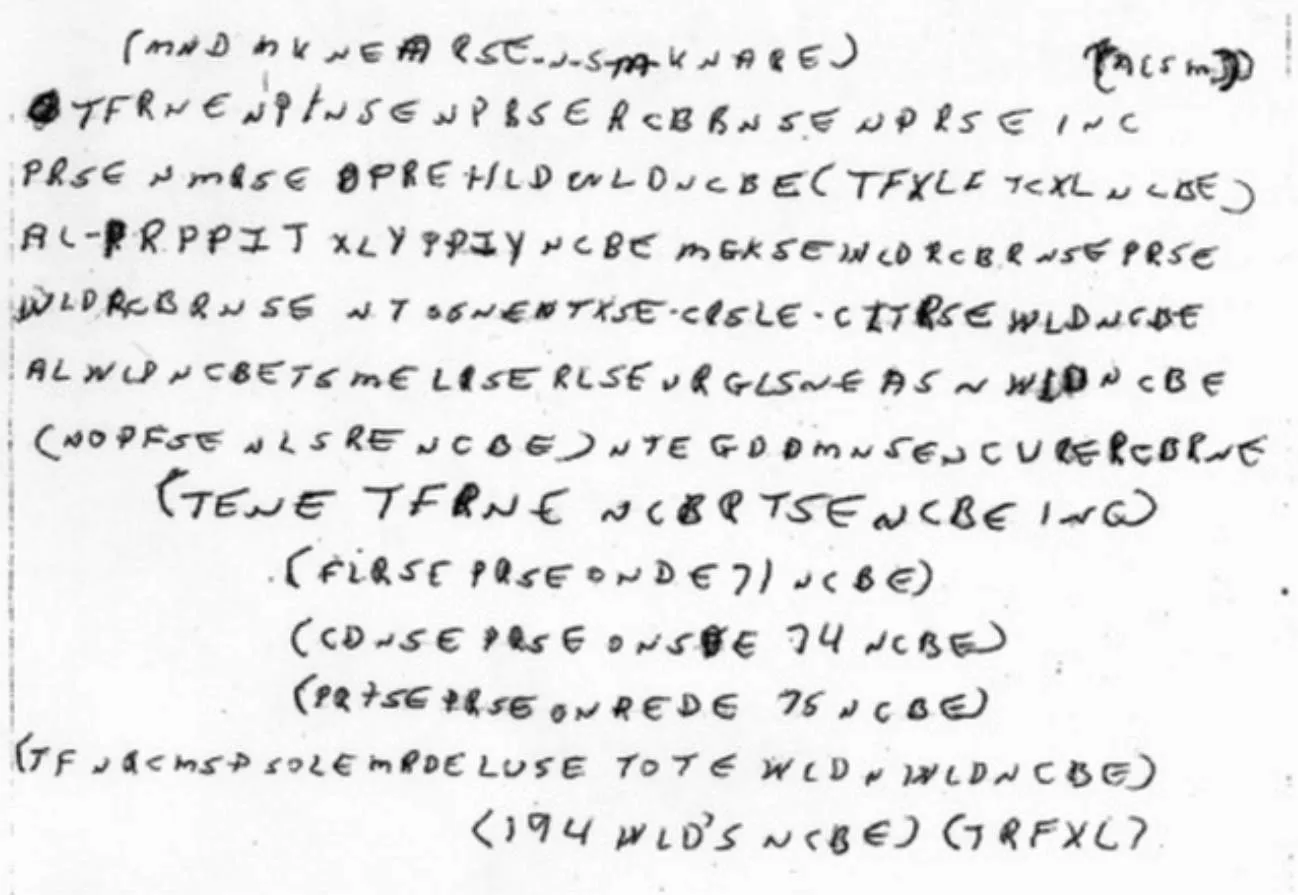 (MND MKNEARSE-N-S-M-KNARE) (ACSM)
TFRNENPINSENPBSERCBBNSENPRSEINC
PRSENMRSEOPREHLDWLDNCBE(TFXLF TCXLNCBE)
AL-PRPPIT XLYPPIYNCBE MGKSEWLDRCBRNSEPRSE
WLDRCBRNSE NTSGNENTXSE-CRSLE-CITRSEWLDNCBE
ALWLPNCBETSMELRSERLSEURGLSNEASNWLDNCBE
(NOPFSE NLSRENCBE)NTEGDDMNSENCURERCBRNE
(TENE TFRNE NCBRTSENCBEING)
(FLRSE PRSEONDE71NCBE)
(CDNSE PRSEONSDE74NCBE)
(PRTSEPRSEONREDE75NCBE)
(TFNRCMSPSOLEMRDELUSE TOTE WLDNWLDNCBE)
(194 WLD'S NCBE) (TRFXL)